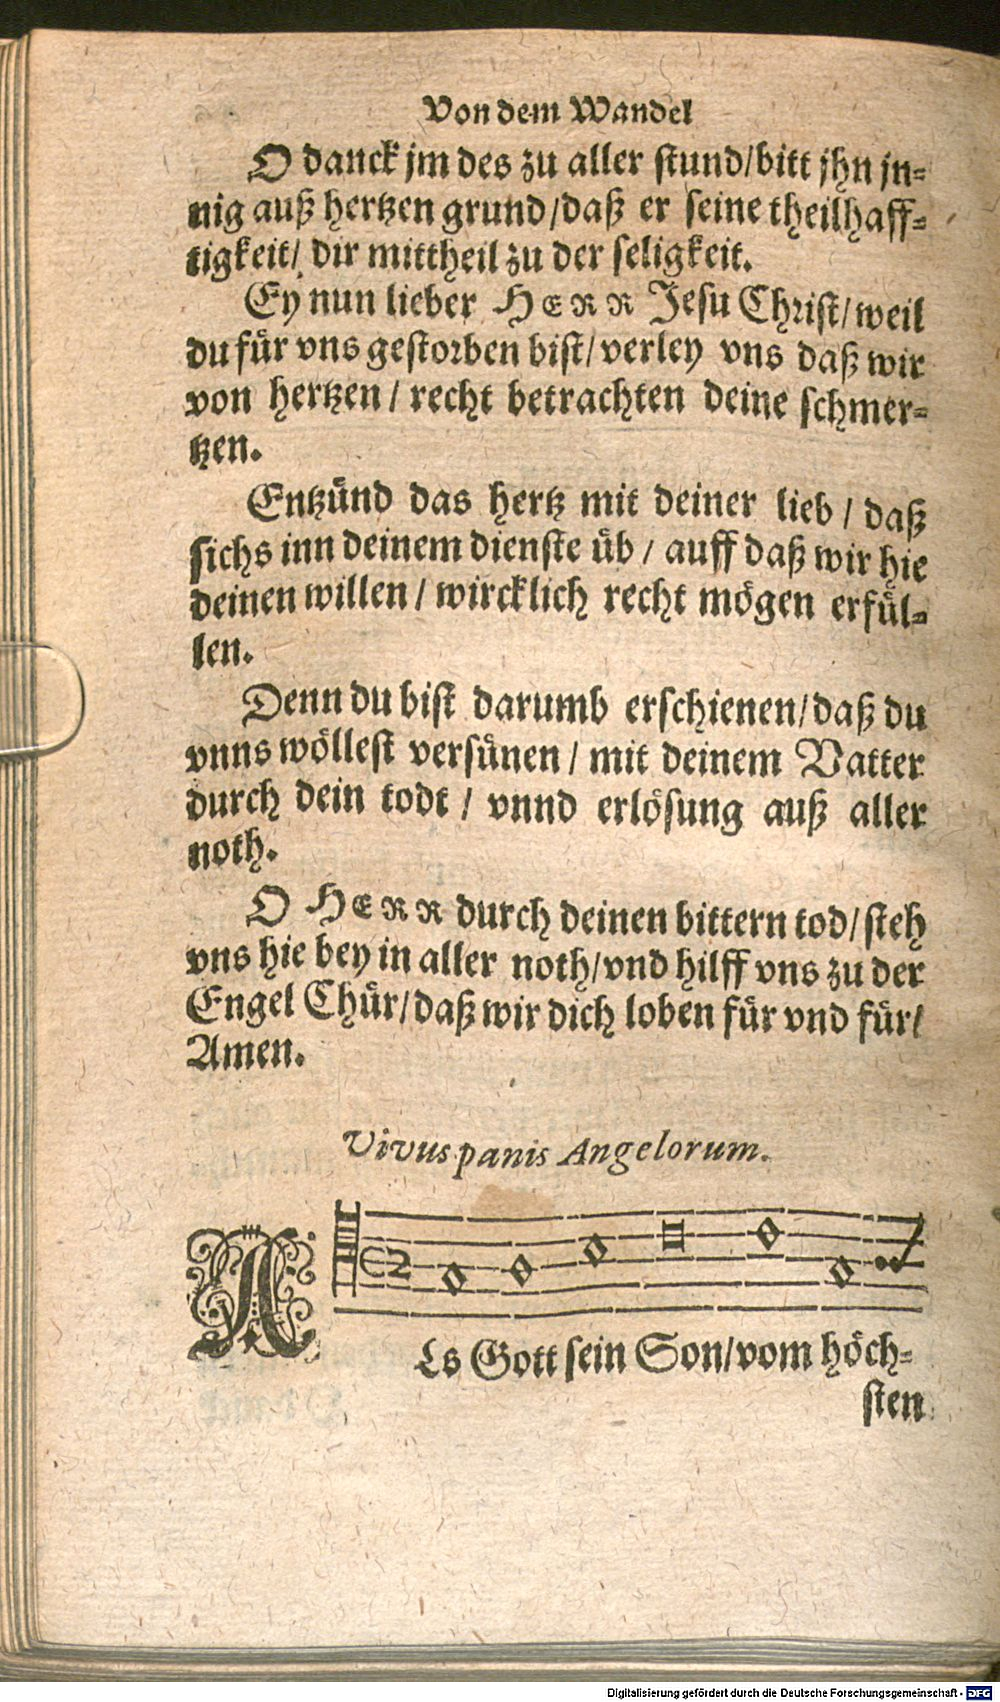 Von dem Wandel
O danck jm des zu aller stund/bitt jhn jn-
nig auß hertzen grund/daß er seine theilhaff-
tigkeit/ dir mittheil zu der seligkeit.
Ey nun lieber HERR Jesu Christ/weil
du für vns gestorben bist/verley vns daß wir
von hertzen/ recht betrachten deine schmer-
tzen.
Entzünd das hertz mit deiner lieb/ daß
sichs inn deinem dienste üb/ auff daß wir hie
deinen willen/ wircklich recht mögen erfül-
len.
Denn du bist darumb erschienen/daß du
vnns wöllest versünen/ mit deinem Vatter
durch dein todt/ vnnd erlösung auß aller
noth.
O HERR durch deinen bittern tod/steh
vns hie bey in aller noth/vnd hilff vns zu der
Engel Chür/daß wir dich loben für vnd für/
Amen.
Vivus panis Angelorum.
ALs Gott sein Son/vom höch-
sten
Digitalisierung gefördert durch die Deutsche Forschungsgemeinschaft - DFG